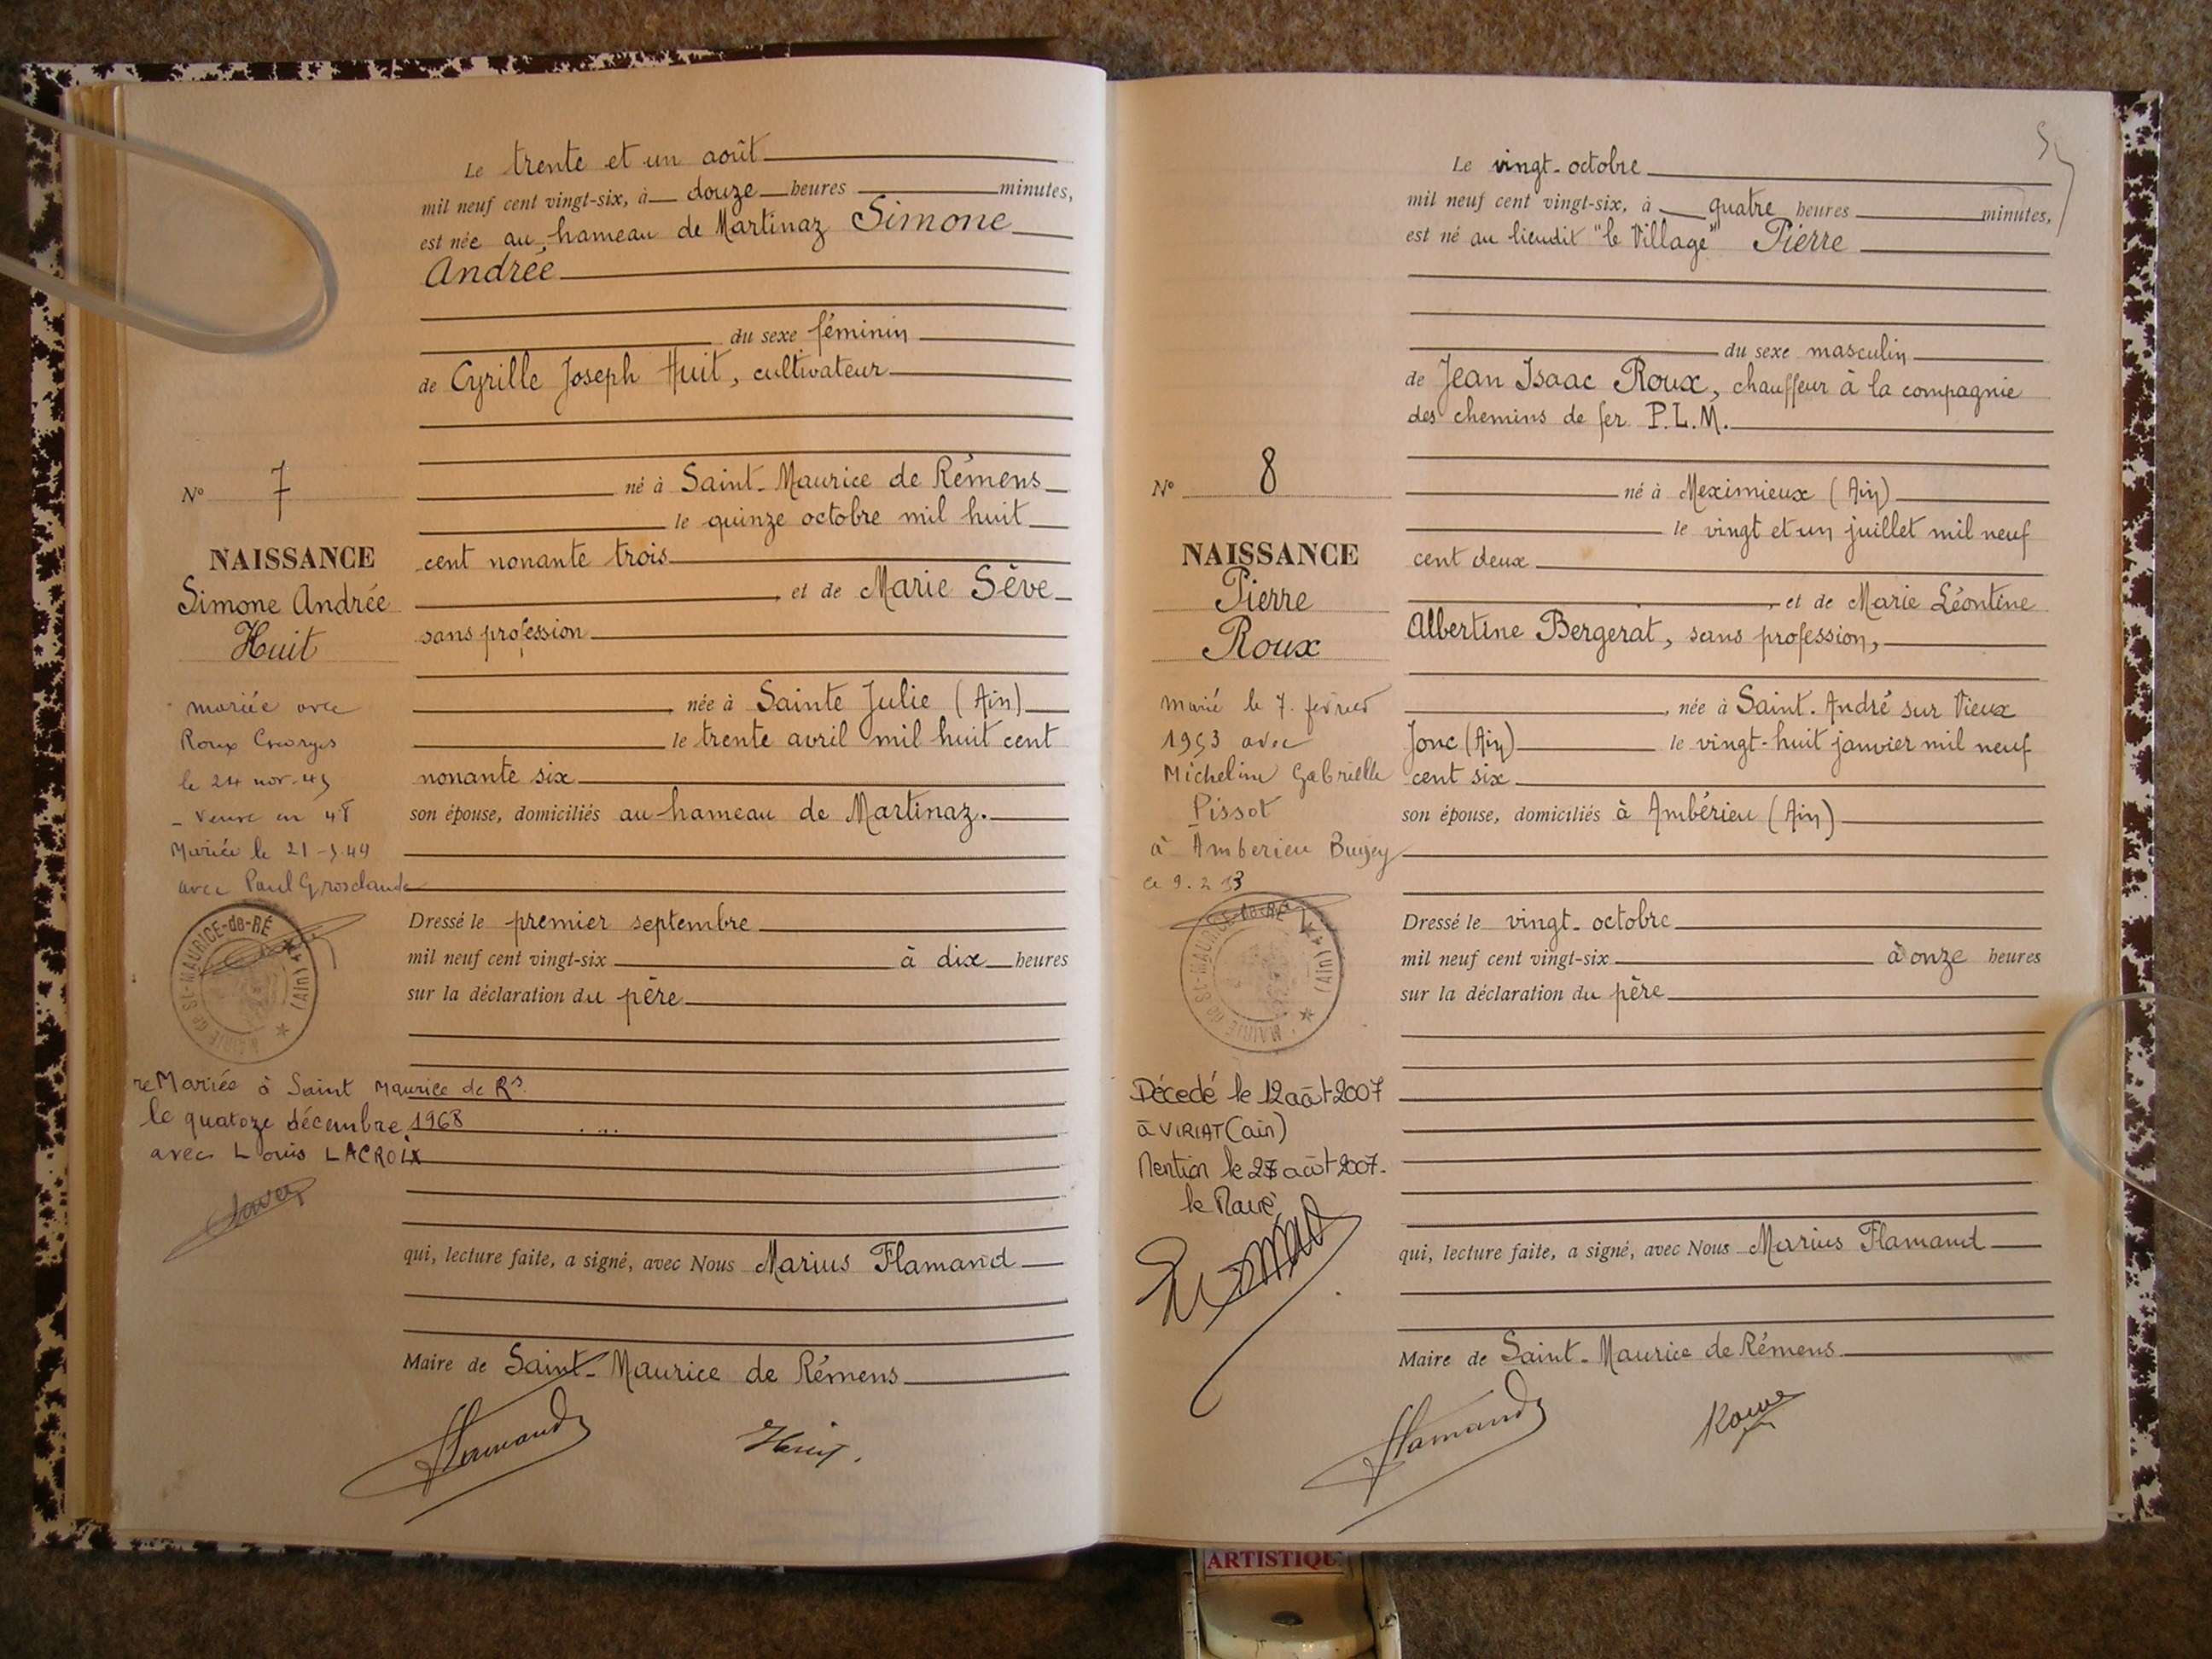 Le trente et un août
mil neuf cent vingt-six, à douze heures minutes,
est née au hameau de Martinaz Simone
Andrée
du sexe féminin
de Cyrille Joseph Huit, cultivateur
né à Saint-Maurice de Rémens
le quinze octobre mil huit
cent nonante trois
, et de Marie Sève
sans profession
, née à Sainte Julie (Ain)
le trente avril mil huit cent
nonante six
son épouse, domiciliés au hameau de Martinaz.
Dressé le premier septembre
mil neuf cent vingt-six à dix heures
sur la déclaration du père
qui, lecture faite, a signé, avec Nous Marius Flamand
Maire de Saint-Maurice de Rémens
Flamand
Huit.
N° 7
NAISSANCE
Simone Andrée
Huit
mariée avec
Roux Georges
le 24 nov-45
- Veuve en 48
Mariée le 21-5-49
avec Paul Grosclaude
MAIRIE de St-MAURICE-de-RÉ
(Ain)
reMariée à Saint Maurice de Rs.
le quatoze décembre 1968
avec Louis LACROIX
Le vingt-octobre
mil neuf cent vingt-six, à quatre heures minutes,
est né au lieudit "le Village" Pierre
du sexe masculin
de Jean Isaac Roux, chauffeur à la compagnie
des chemins de fer P.L.M.
né à Meximieux (Ain)
le vingt et un juillet mil neuf
cent deux
, et de Marie Léontine
Albertine Bergerat, sans profession,
, née à Saint. André sur Vieux
Jonc (Ain) le vingt-huit janvier mil neuf
cent six
son épouse, domiciliés à Ambérieu (Ain)
Dressé le vingt-octobre
mil neuf cent vingt-six à onze heures
sur la déclaration du père
qui, lecture faite, a signé, avec Nous Marius Flamand
Maire de Saint-Maurice de Rémens
Flamand
Roux
N° 8
NAISSANCE
Pierre
Roux
marié le 7. fevrier
1953 avec
Micheline Gabrielle
Pissot
à Amberieu Bugey
MAIRIE de St-MAURICE-de-RÉ
(Ain)
Décedé le 12 août 2007
à VIRIAT (ain)
Mention le 27 août 2007.
le Maire
ARTISTIQU